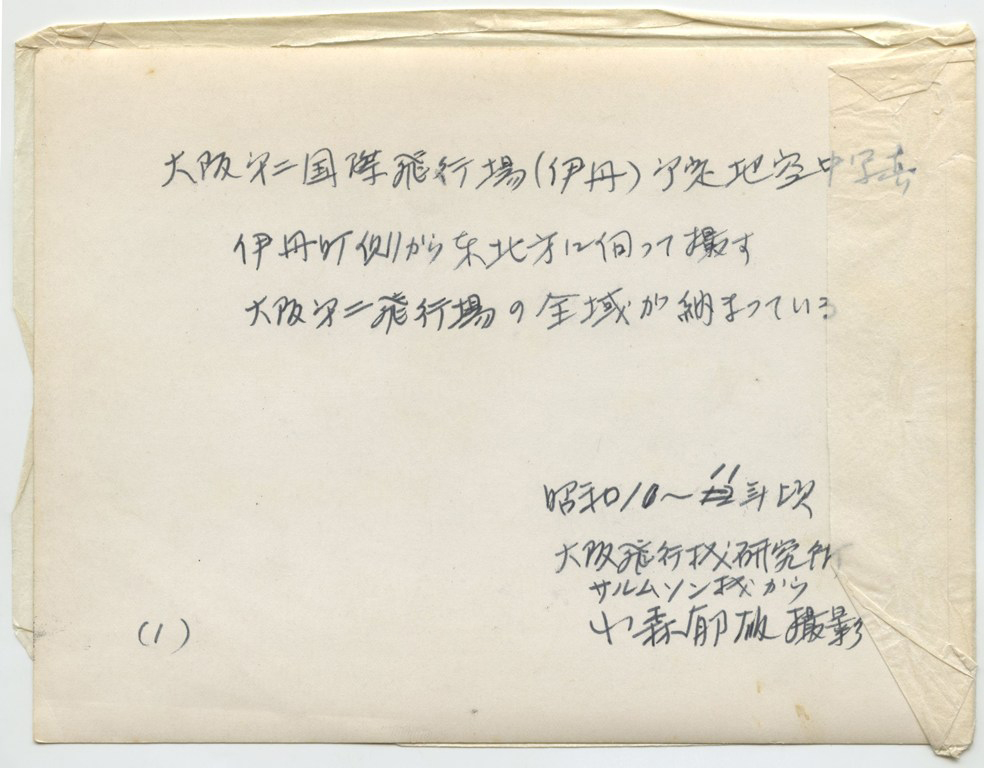 大阪第二国際飛行場(伊丹)予定地空中写真
伊丹町側から东北方に向って撮す
大阪第二飛行場の全域が納まっている
昭和10〜11年頃
大阪飛行機研究所
サルムソン機から
小森郁雄撮影
(1)